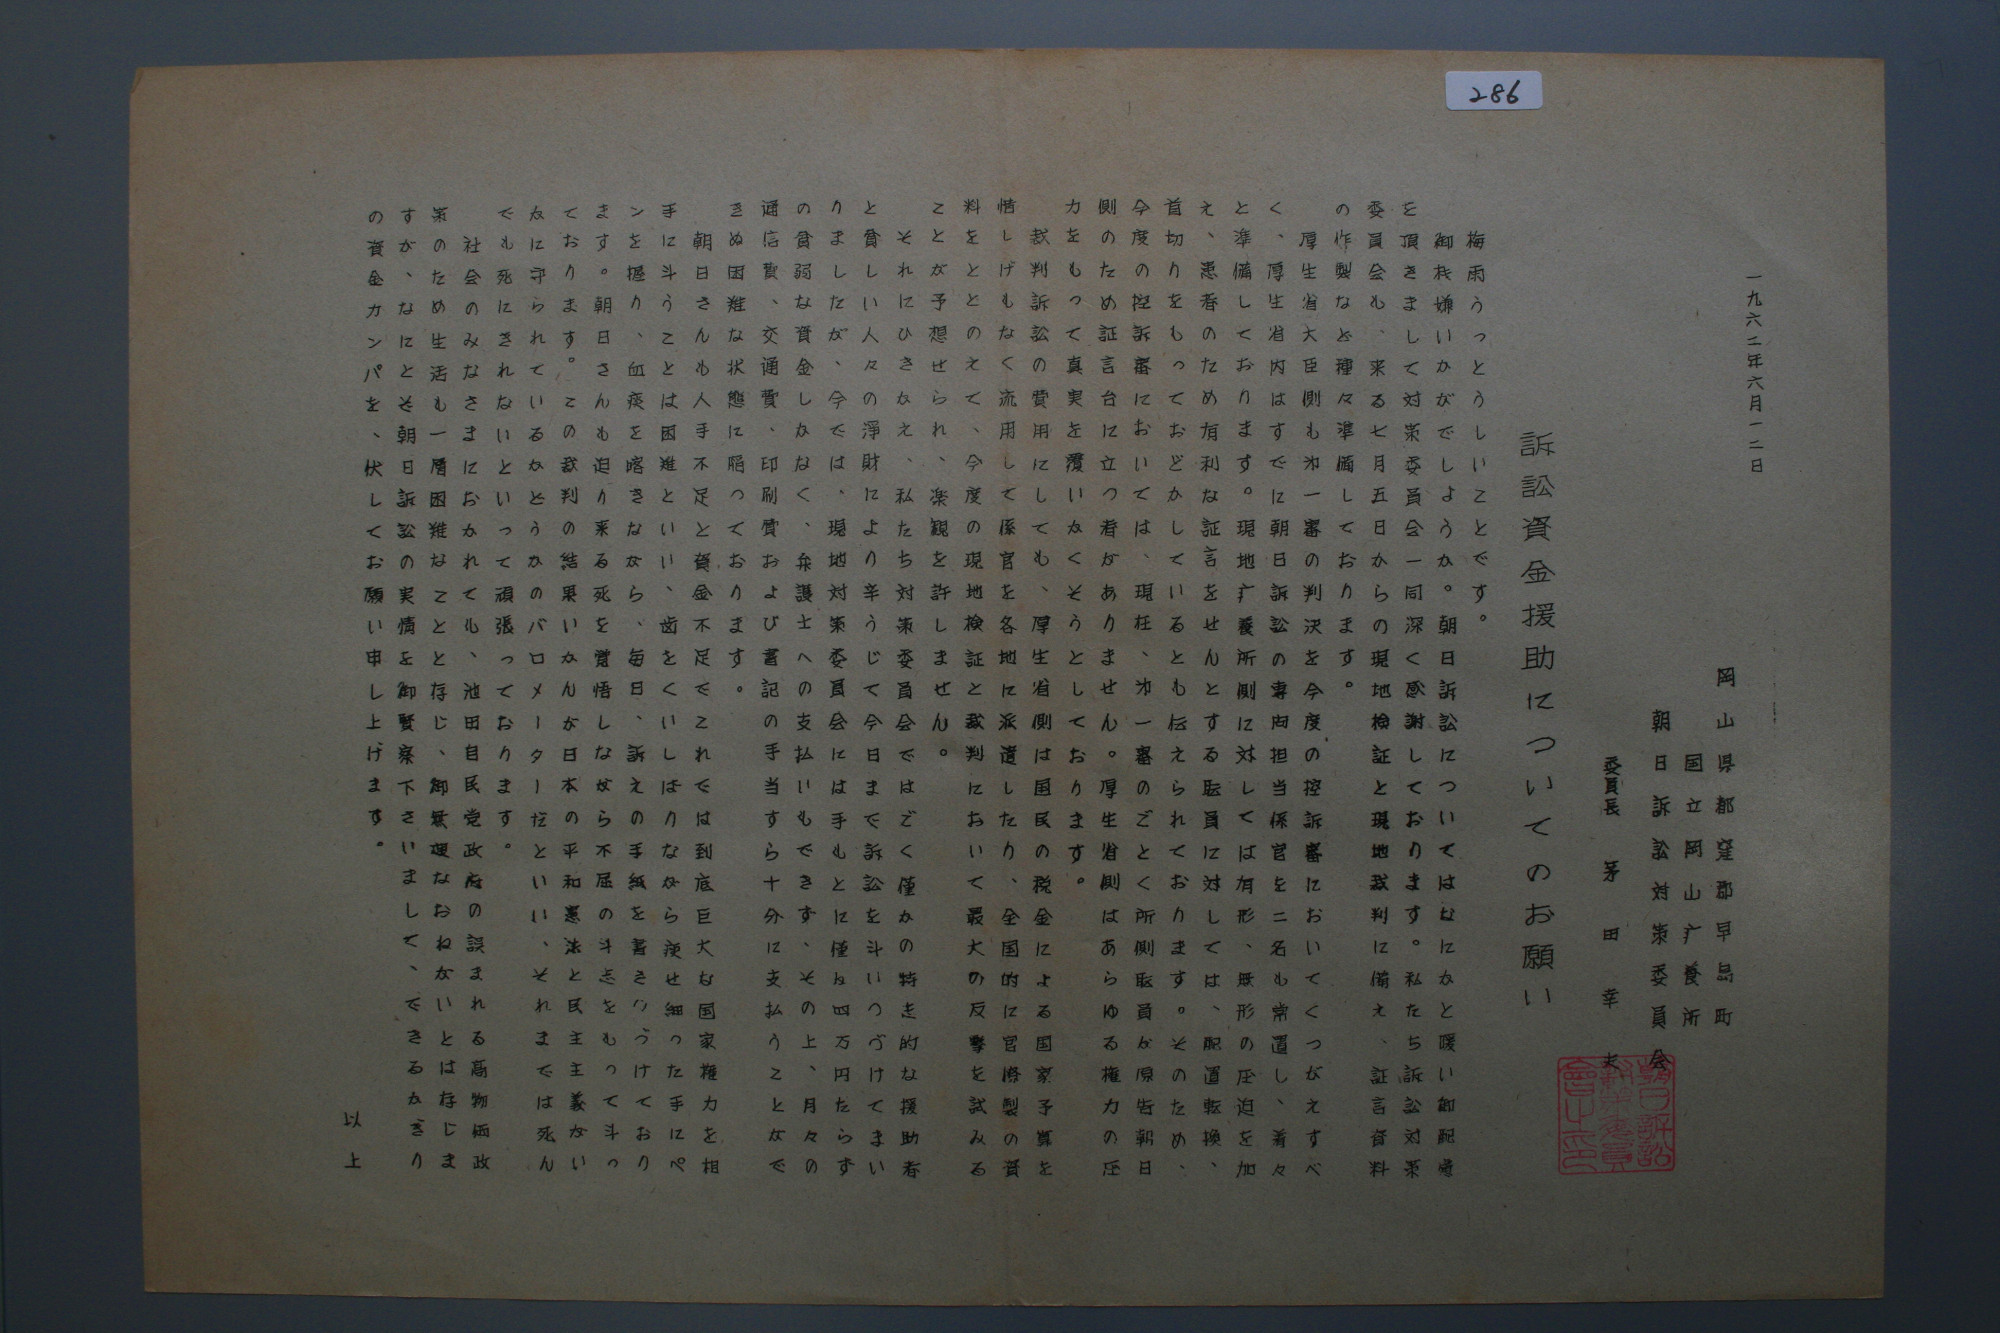 286
一九六二年六月一二日
岡山県都窪郡早島町
国立岡山疒養所
朝日訴訟対策委員会
委員長　茅田幸夫
朝日訴訟対策委員会之印
訴訟資金援助についてのお願い
梅雨うっとうしいことです。
御机嫌いかがでしようか。朝日訴訟についてはなにかと暖い御配慮
を頂きまして対策委員会一同深く感謝しております。私たち訴訟対策
委員会も、来る七月五日からの現地検証と現地裁判に備え、証言資料
の作製など種々準備しております。
厚生省大臣側も㐧一審の判決を今度の控訴審においてくつがえすべ
く、厚生省内はすでに朝日訴訟の専向担当係官を二名も常置し、着々
と準備しております。現地疒養所側に対しては有形、無形の圧迫を加
え、患者のため有利な証言をせんとする職員に対しては、配置転換、
首切りをもっておどかしているとも伝えられております。そのため、
今度の控訴審においては、現在、㐧一審のごとく所側職員が原告朝日
側のため証言台に立つ者がありません。厚生省側はあらゆる権力の圧
力をもって真実を覆いかくそうとしております。
裁判訴訟の費用にしても、厚生省側は国民の税金による国家予算を
惜しげもなく流用して係官を各地に派遣したり、全国的に官僚製の資
料をととのえて、今度の現地検証と裁判において最大の反撃を試みる
ことが予想せられ、楽観を許しません。
それにひきかえ、私たち対策委員会ではごく僅かの特志的な援助者
と貧しい人々の淨財により辛うじて今日まで訴訟を斗いつづけてまい
りましたが、今では、現地対策委員会には手もとに僅か四万円たらず
の貧弱な資金しかなく、弁護士への支払いもできず、その上、月々の
通信費、交通費、印刷費および書記の手当すら十分に支払うことなで
きぬ困難な状態に陥っております。
朝日さんも人手不足と資金不足でこれでは到底巨大な国家権力を相
手に斗うことは困難といい、歯をくいしばりながら痩せ細った手にペ
ンを握り、血痰を喀きながら、毎日、訴えの手紙を書きつづけており
ます。朝日さんも迫り来る死を覚悟しながら不屈の斗志をもって斗っ
ております。この裁判の結果いかんが日本の平和憲法と民主主義がい
かに守られているかどうかのバロメーターだといい、それまでは死ん
でも死にきれないといって頑張っております。
社会のみなさまにおかれても、池田自民党政府の誤まれる高物価政
策のため生活も一層困難なことと存じ、御無理なおねがいとは存じま
すが、なにとぞ朝日訴訟の実情を御賢察下さいまして、できるかぎり
の資金カンパを、伏してお願い申し上げます。
以上